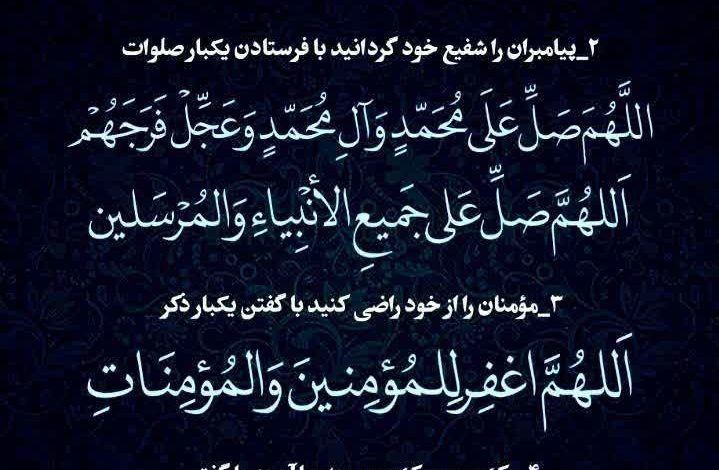 ۲_پیامبران را شفیع خود گردانید با فرستادن یکبار صلوات
اللَّهُمَ صَلِّ عَلَى مُحَمَّدٍ وَآلِ مُحَمَّدٍ وَعَجِّلْ فَرَجَهُمْ
اَللهُمَّ صَلِّ عَلى جَميعِ الأنْبِياءِ وَالمُرْسَلين
۳_مؤمنان را از خود راضی کنید با گفتن یکبار ذکر
اَللهُمَّ اغفِر لِلمُؤمِنينَ وَالمُؤمِنَاتِ